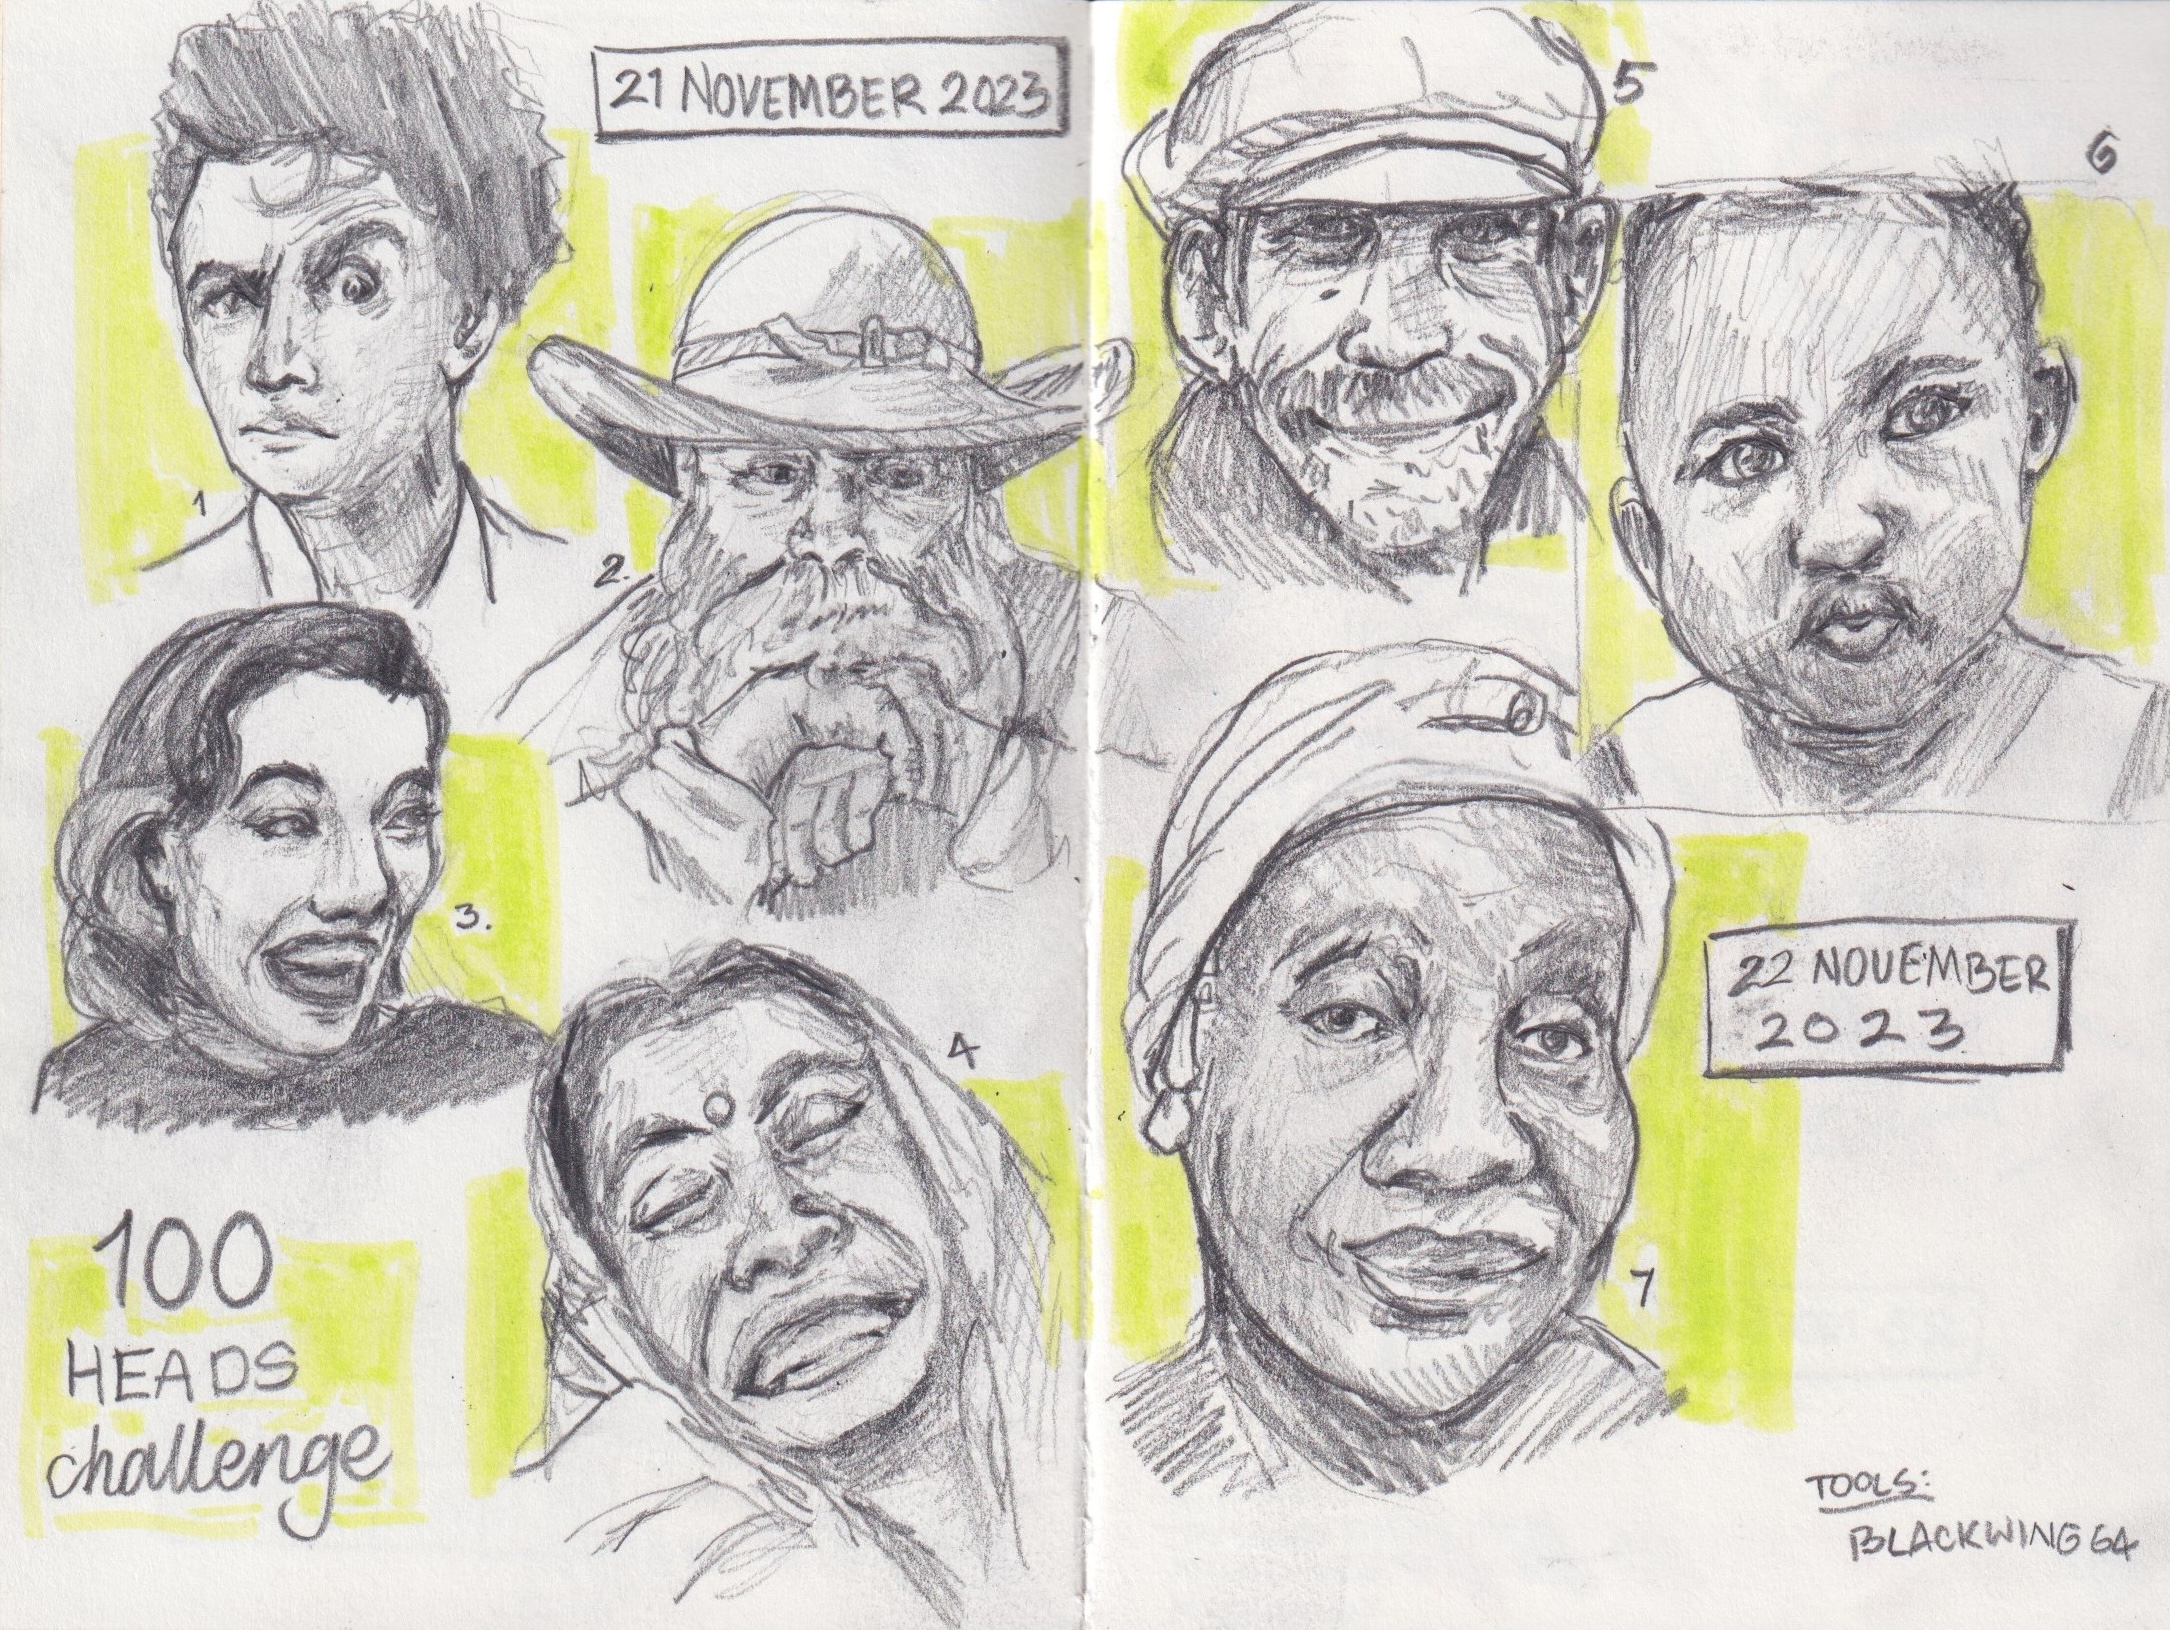 21 NOVEMBER 2023
1
2.
3.
4
100
HEADS
challenge
5
6
7
22 NOVEMBER
2023
TOOLS:
BLACKWING 64